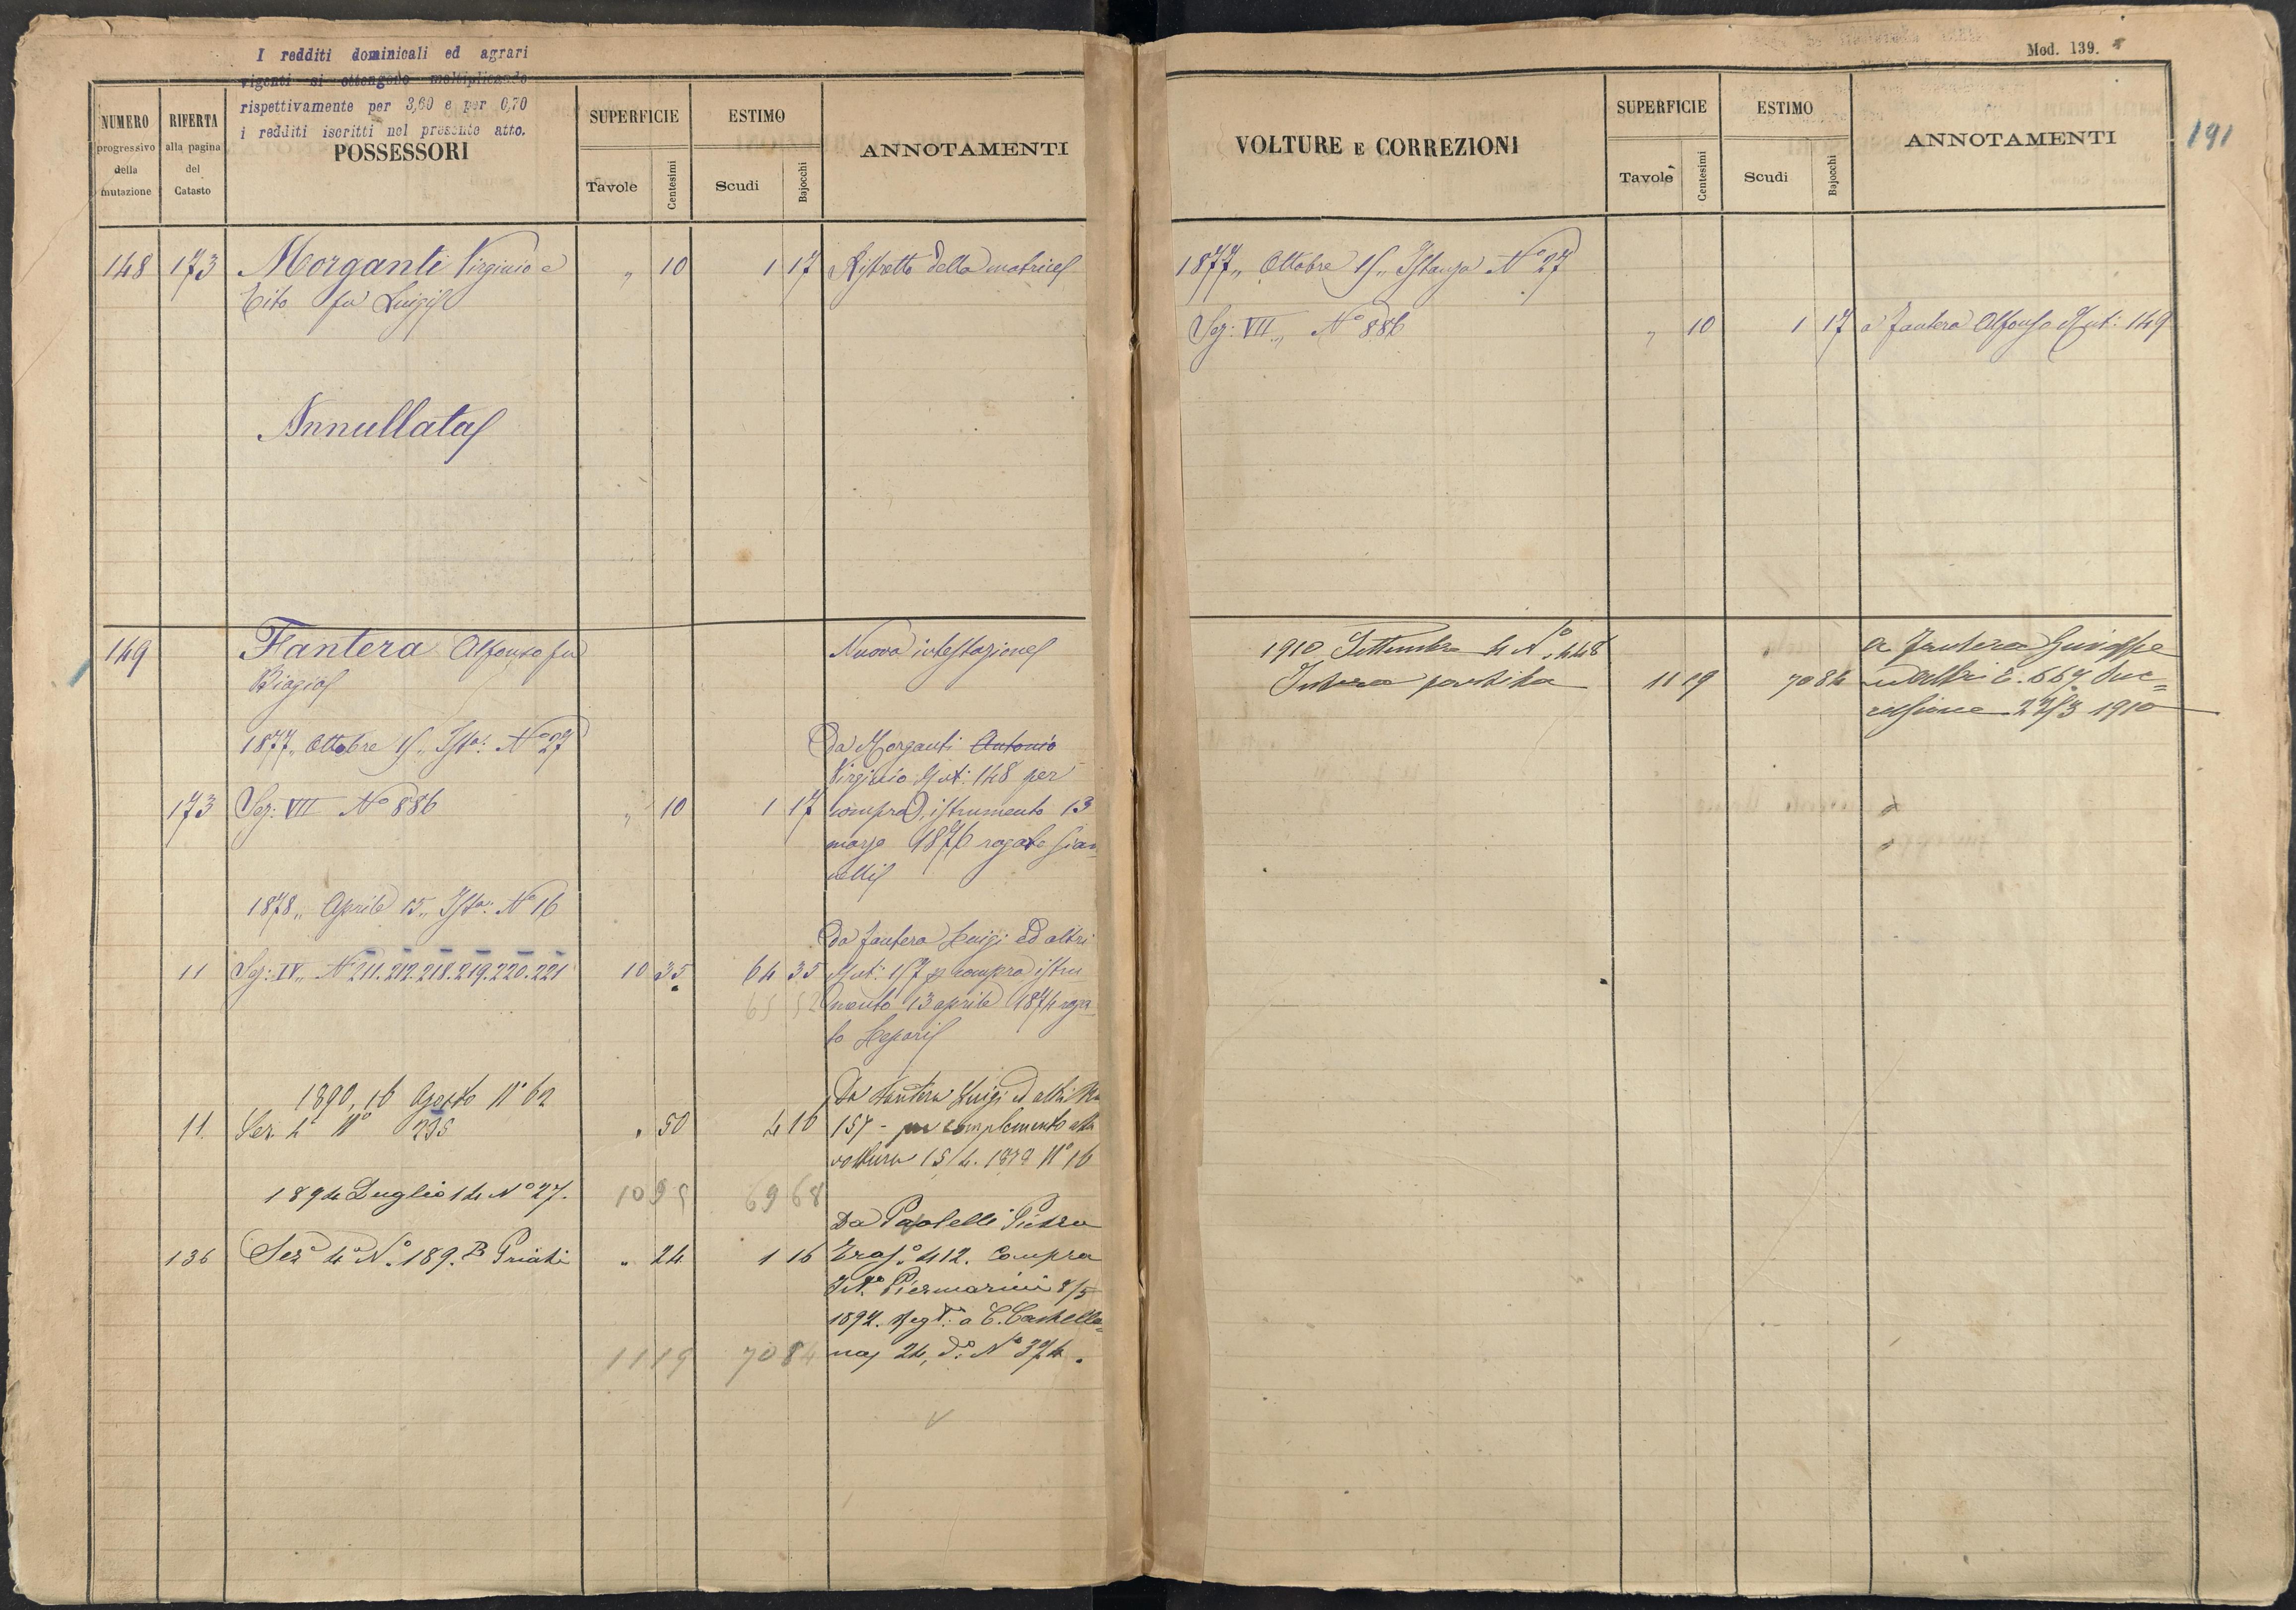 I redditi dominicali ed agrari
vigenti si ottengono moltiplicando
rispettivamente per 3,60 e per 0,70
i redditi iscritti nel presente atto.
NUMERO progressivo della mutazione
RIFERTA alla pagina del Catasto
POSSESSORI
SUPERFICIE
Tavole Centesimi
ESTIMO
Scudi Bajocchi
ANNOTAMENTI
148 173 Morganti Virginio e „ 10 1 17 Ristretto della matrice
Tito fu Luigi
Annullata
149 Fantera Alfonso fu Nuova intestazione
Biagio
1877„ Ottobre 15„ Ista: N° 27 Da Morganti Antonio
Virginio Mut: 148 per
173 Sez: VII N° 886 „ 10 1 17 compra istrumento 13
marzo 1876 rogato Gian
nelli
1878„ Aprile 15„ Ista: N° 16
Da Fantera Luigi ed altri
11 Sez: IV„ N° 211.212.218.219.220.221 10 35 64 35 Mut: 157 p compra istru
65 52 mento 13 aprile 1874 roga
to
1890, 16 Agosto N° 62 Da Fantera Luigi ed altri
11. Sez. 4° N° 235 „ 50 4 16 157 - per complemento alla
voltura 15/4. 1878 N° 16
1894 Luglio 14 N° 27. 10 95 69 68
Da Paolelli Pietro
136 Sez° 4° N° 189. B „ 24 1 16 412. Compra
Piermarini 8/5
1894. Regt: a C. Castella=
11 19 70 84 na 24, d° N° 374.
Mod. 139.
191
VOLTURE E CORREZIONI
SUPERFICIE
Tavole Centesimi
ESTIMO
Scudi Bajocchi
ANNOTAMENTI
1877„ Ottobre 15„ Istanza N° 27
Sez: VII„ N° 886 „ 10 1 17 a Fantera Alfonso Mut: 149
1910 Settembre 4 N° 448 a Fantera Giuseppe
Intera partita 11 19 70 84 ed altri E. 669 Suc=
cessione 22/3 1910